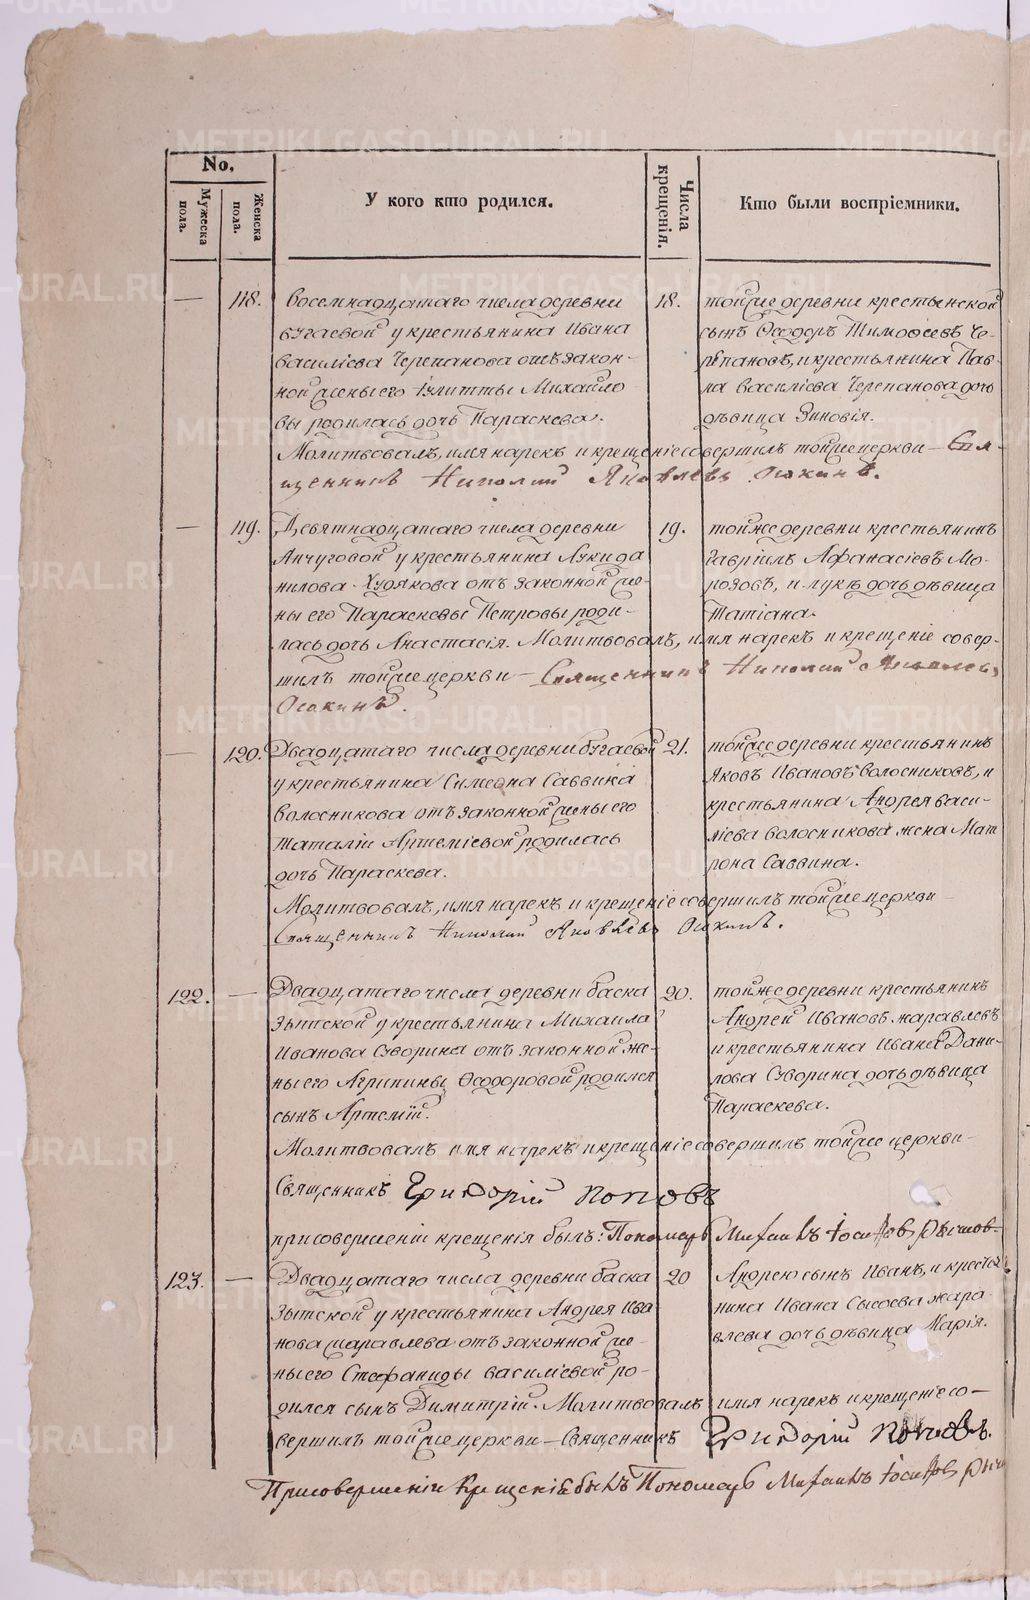 No.
Мужеска пола.
Женска пола.
У кого кто родился.
Числа крещенія.
Кто были воспріемники.
— 118. Восемнадцатаго числа деревни
Бугаевой у крестьянина Ивана
Василіева Черепанова отъ закон-
ной жены его Іулитты Михайло
вы родилась дочь Параскева.
18. тойже деревни крестьянской
сынъ Ѳеодоръ Тимоѳеевъ Че-
репановъ, и крестьянина Пав-
ла Василіева Черепанова дочь
дѣвица Зиновія.
Молитвовалъ, имя нарекъ и крещеніе совершилъ тойже церкви — Свя-
щенникъ Николай Яковлевъ Осокинъ.
— 119. Девятнадцатаго числа деревни
Анчуговой у крестьянина Луки Да
нилова Худякова отъ законной же-
ны его Параскевы Петровы роди-
19. тойже деревни крестьянинъ
Гавріилъ Афанасіевъ Мо-
розовъ, и Луки дочь дѣвица
Татіана.
лась дочь Анастасія. Молитвовалъ, имя нарекъ и крещеніе совер-
шилъ тойже церкви — Священникъ Николай Яковлевъ
Осокинъ.
— 120. Двадцатаго числа деревни Бугаевой
у крестьянина Симеона Саввина
Волосникова отъ законной жены его
Наталіи Артеміевой родилась
дочь Параскева.
21. тойже деревни крестьянинъ
Яковъ Ивановъ Волосниковъ, и
крестьянина Андрея Васи-
ліева Волосникова жена Мат
рона Саввина.
Молитвовалъ, имя нарекъ и крещеніе совершилъ тойже церкви —
Священникъ Николай Яковлевъ Осокинъ.
122. — Двадцатаго числа деревни Баска
зытской у крестьянина Михаила
Иванова Суворина отъ законной же-
ны его Агрипины Ѳеодоровой родился
сынъ Артемій.
20. тойже деревни крестьянинъ
Андрей Ивановъ Жаравлевъ
и крестьянина Ивана Дани-
лова Суворина дочь дѣвица
Параскева.
Молитвовалъ имя нарекъ и крещеніе совершилъ тойже церкви —
Священникъ Григорій Поповъ
при совершеніи крещенія былъ: Пономарь Михаилъ Іосифовъ
123. — Двадцатаго числа деревни Баска
зытской у крестьянина Андрея Ива
нова Жаравлева отъ законной же-
ны его Стефаниды Василіевой ро-
20 Андрею сынъ Иванъ, и крестья
нина Ивана Сысоева Жара
влева дочь дѣвица Марія.
дился сынъ Димитрій. Молитвовалъ имя нарекъ и крещеніе со-
вершилъ тойже церкви — Священникъ Григорій Поповъ.
При совершеніи крещенія былъ Пономарь Михаилъ Іосифовъ
METRIKI.GASO-URAL.RU